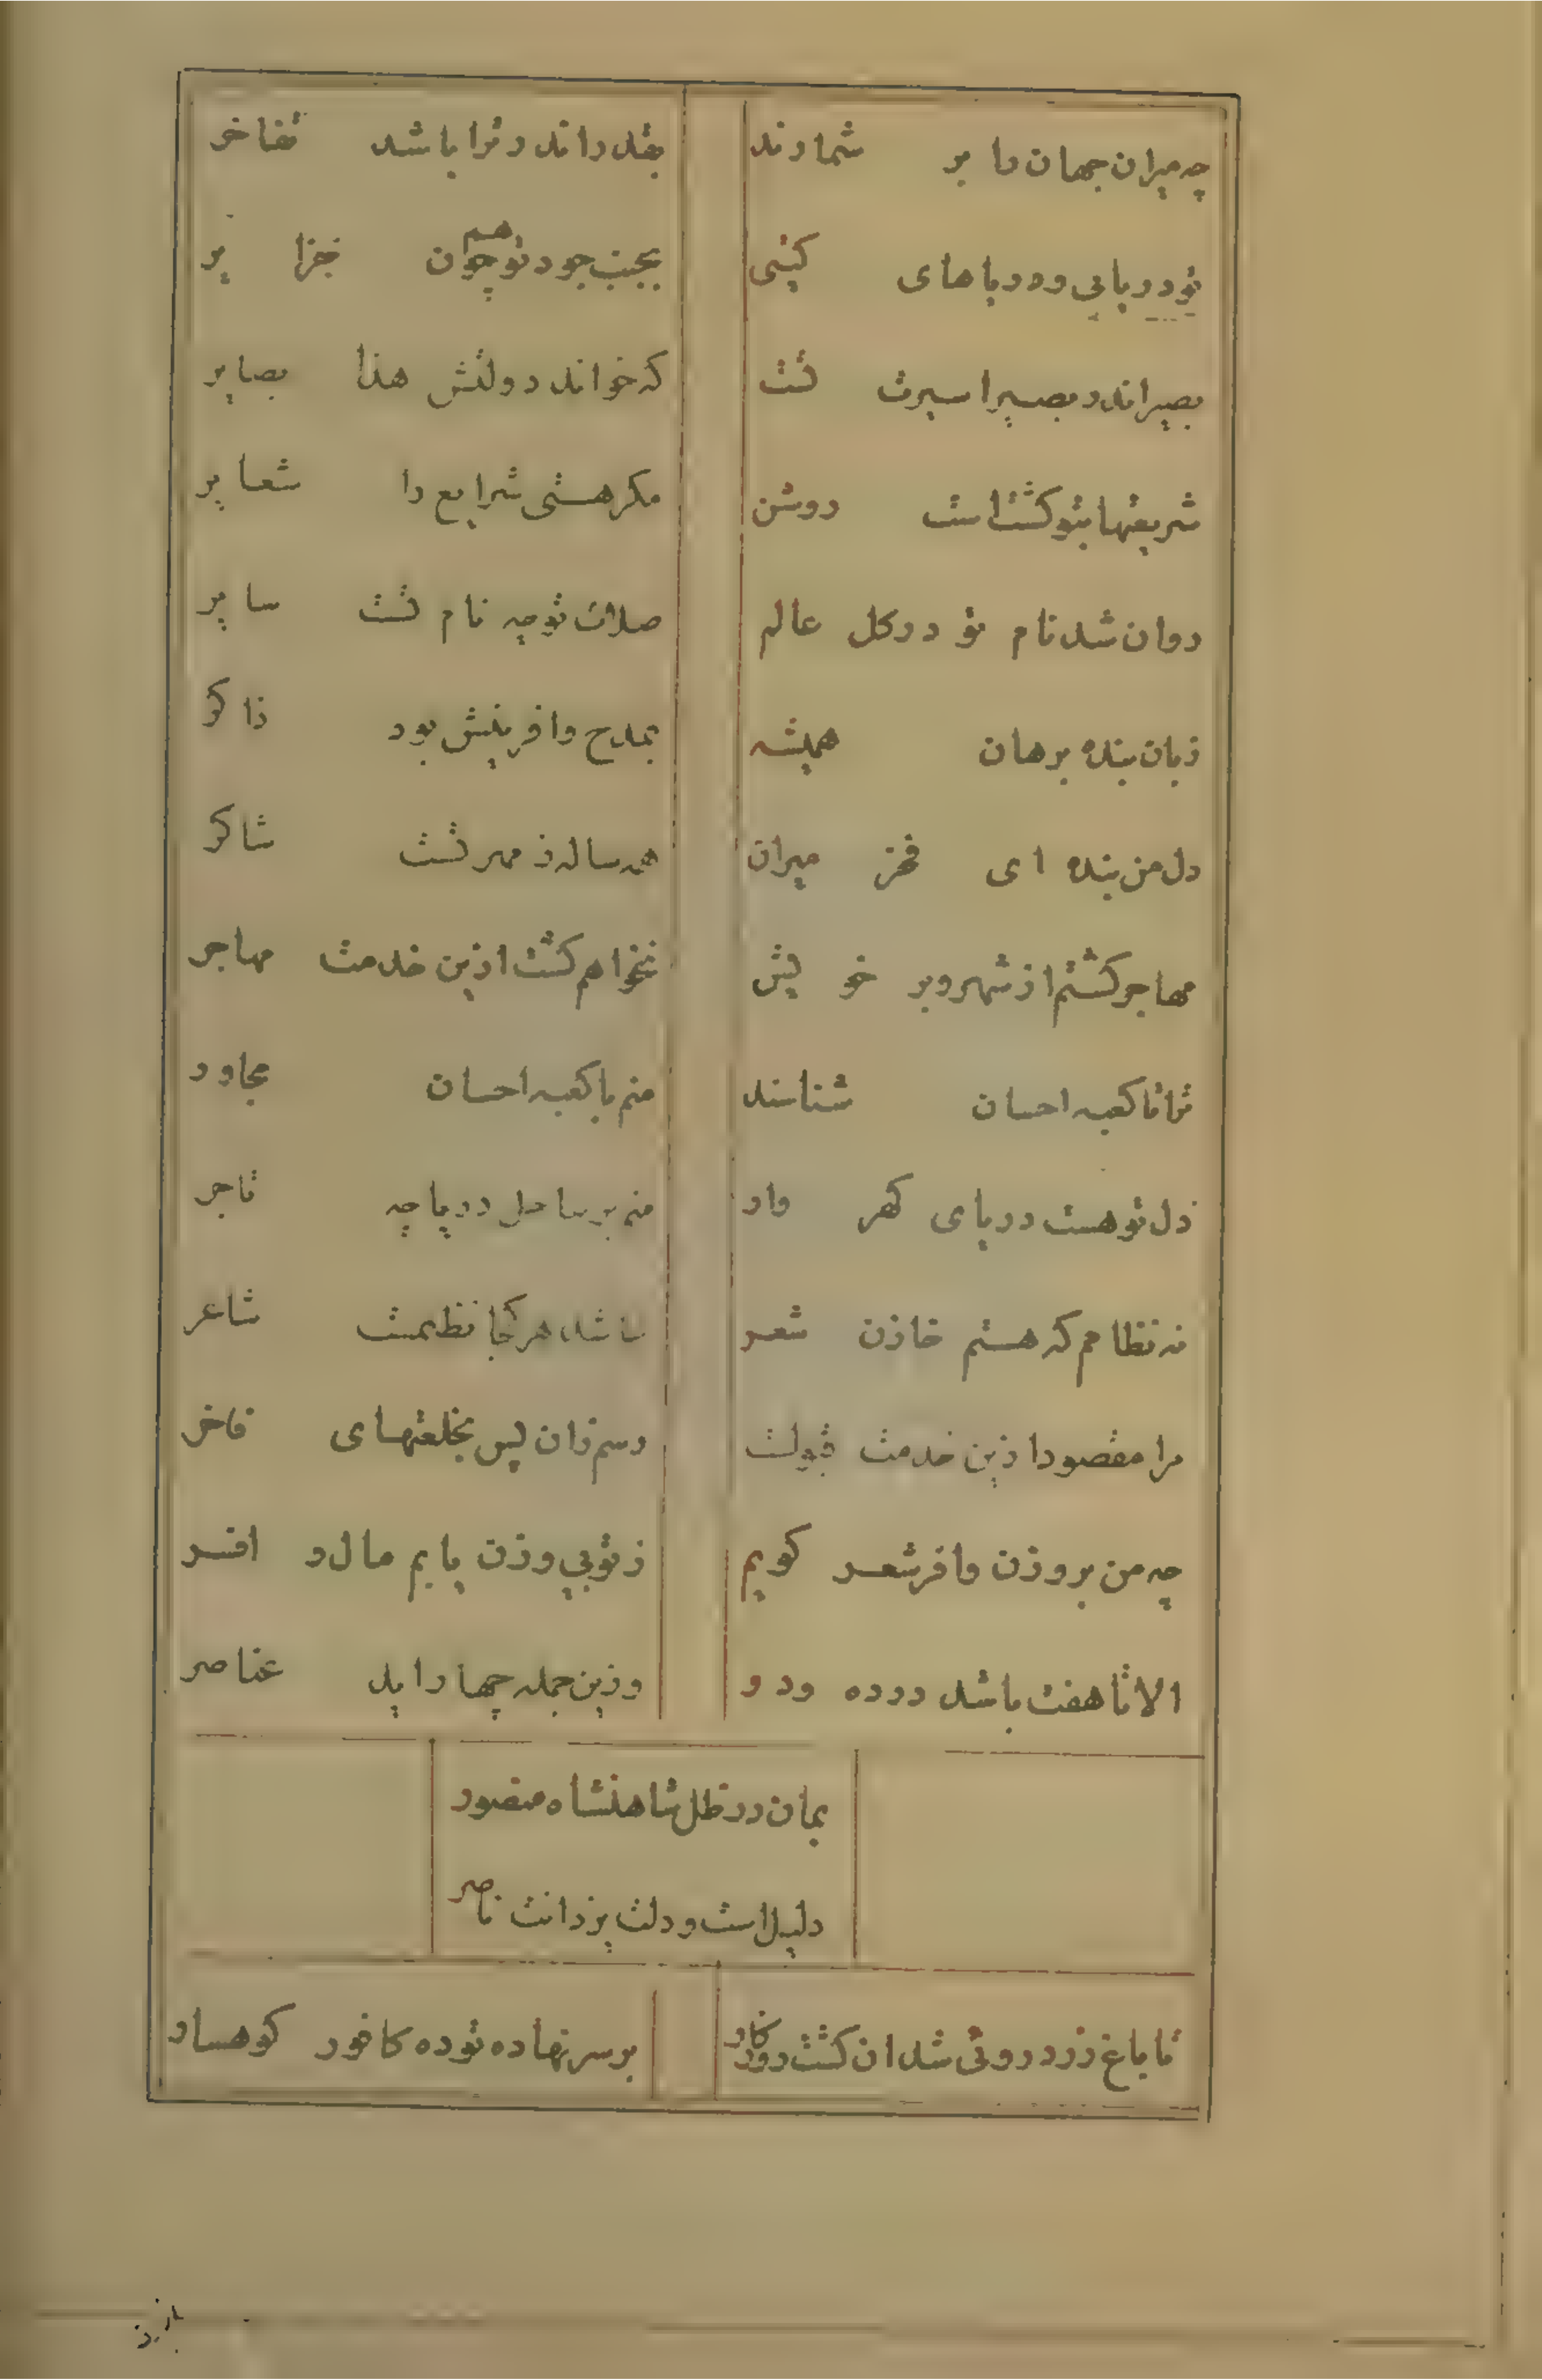 چه میران جهان را بر شمارند
بقد داند و ترا باشد تفاخر
تو دریایی و دریاهای کیتی
بجنب جود تو همچون جزایر
بصیر اندر بصیرا سیرت تست
که خواند دولتش هذا بصایر
شریعتها بتو کشت است روشن
مکر هستی شرایع را شعایر
روان شد نام تو در کل عالم
صلات تو چه نام تست سایر
زبان بنده برهان همیشه
بمدح و افرینش بود ذاکر
دل من بنده ای فخر میران
همه ساله ز مهر تست شاکر
مهاجر کشتم از شهر و بر خویش
نخواهم کشت ازین خدمت مهاجر
ترا تا کعبه احسان شناسند
منم با کعبه احسان مجاور
دل تو هست دریای کهر وار
منم بر ساحل دریا چه تاجر
نه نظامم که هستم خازن شعر
نباشد هر کجا نظمیست شاعر
مرا مقصود ازین خدمت قبولت
رسم زان پس بخلعتهای فاخر
چه من بر وزن وافر شعر کویم
ز تو بی وزن یابم مال وافر
الا تا هفت باشد در ده و دو
وزین جمله چهار اید عناصر
بمان در ظل شاهنشاه منصور
دلیل است و دلت یزدانت ناصر
تا باغ زرد روی شد از کشت روزکار
بر سر نهاده توده کافور کوهسار